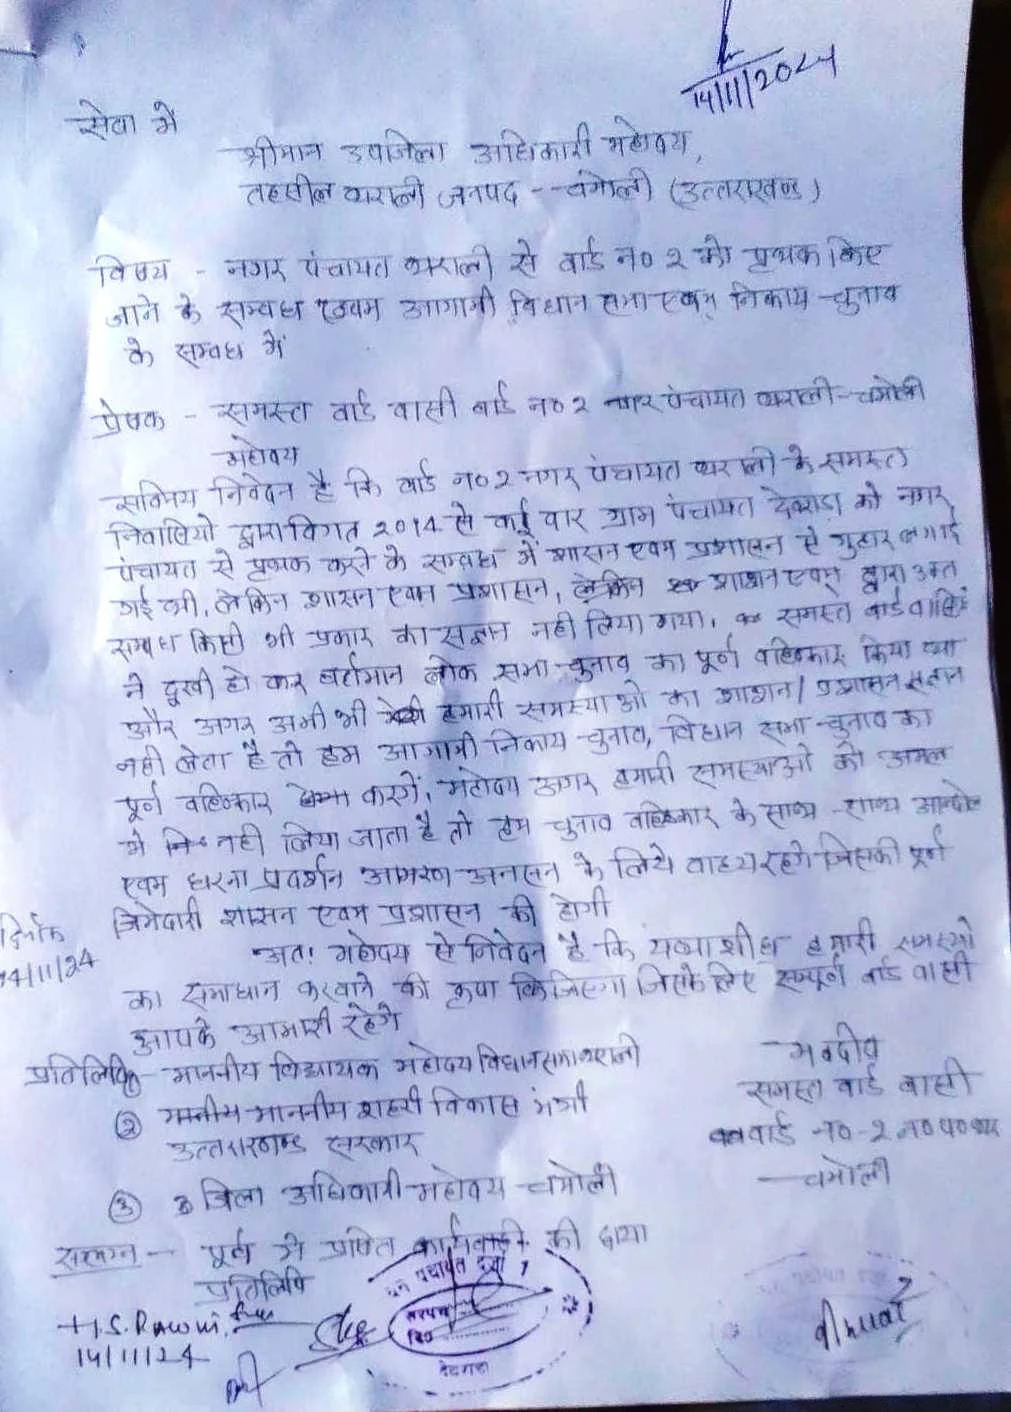 14/11/2024
सेवा में
श्रीमान उपजिला अधिकारी महोदय,
तहसील थराली जनपद - चमोली (उत्तराखण्ड)
विषय - नगर पंचायत थराली से वार्ड न० 2 को पृथक किए
जाने के सम्बध एवम आगामी विधान सभा एवम् निकाय चुनाव
के सम्बध में
प्रेषक - समस्त वार्ड वासी वार्ड न० 2 नगर पंचायत थराली - चमोली
महोदय
सविनय निवेदन है कि वार्ड न० 2 नगर पंचायत थराली के समस्त
निवासियो द्वारा विगत 2014 से कई वार ग्राम पंचायत देवराड़ा को नगर
पंचायत से पृथक करने के सम्बध में शासन एवम प्रशासन से गुहार लगाई
गई थी, लेकिन शासन एवम प्रशासन, लेकिन शाशन एवम् द्वारा उक्त
सम्बध किसी भी प्रकार का सज्ञान नही लिया गया, समस्त वार्ड वासियो
ने दुखी हो कर वर्तमान लोक सभा चुनाव का पूर्ण वहिष्कार किया था
और अगर अभी भी हमारी समस्याओ का शाशन/प्रशासन सज्ञान
नही लेता है तो हम आगामी निकाय चुनाव, विधान सभा चुनाव का
पूर्ण वहिष्कार करगें, महोदय अगर हमारी समस्याओ को अमल
मे नही लिया जाता है तो हम चुनाव वहिष्कार के साथ - साथ आन्दोलन
एवम धरना प्रदर्शन आमरण अनसन के लिये वाध्य रहेगे जिसकी पूर्ण
जिमेदारी शासन एवम प्रशासन की होगी
दिनांक
14/11/24
अत! महोदय से निवेदन है कि यथाशीघ्र हमारी समस्यो
का समाधान करवाने की कृपा किजिएगा जिसके लिए सम्पूर्ण वार्ड वासी
आपके आभारी रहेगे
प्रतिलिपि ① - माननीय विधायक महोदय विधानसभा थराली
② माननीय शहरी विकास मंत्री
उत्तराखण्ड सरकार
③ जिला अधिकारी महोदय - चमोली
भवदीय
समस्त वार्ड वासी
वार्ड न० - 2 न० प० थर
- चमोली
सलग्न - पूर्व मे प्रषित कार्यवाही की छाया
प्रतिलिपि
H.S. Rawat
14/11/24
सरपंच
देवराडा